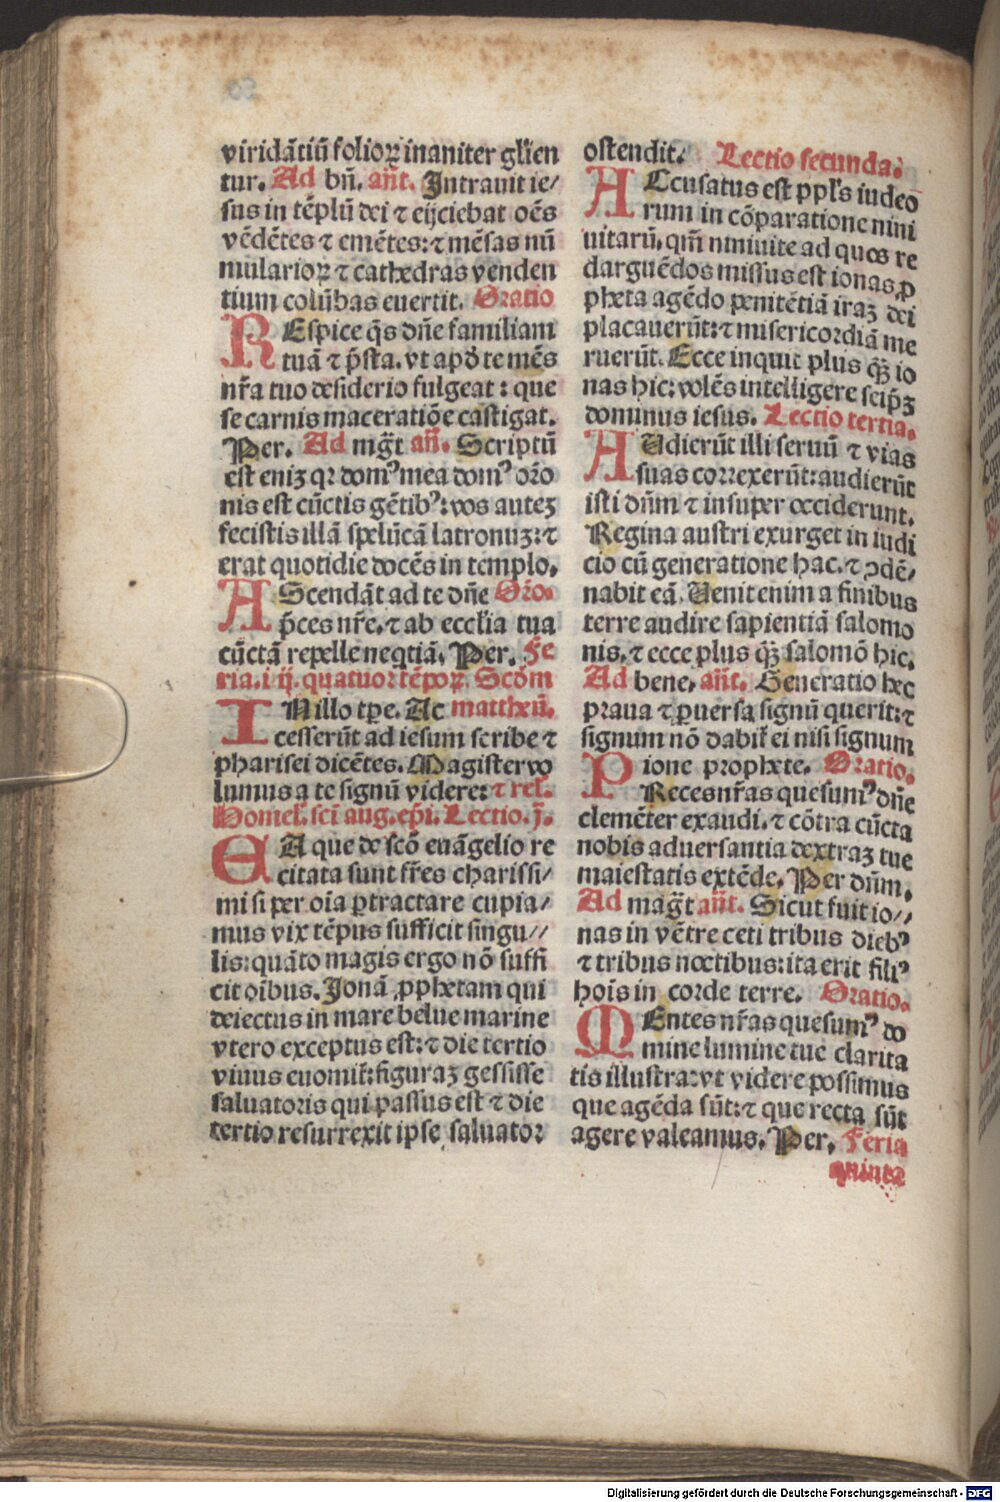 viridãtiũ folioꝝ inaniter gl'ien
tur. Ad bñ. añt. Intrauit ie/
sus in tẽplũ dei ⁊ eijciebat oẽs
vẽdẽtes ⁊ emẽtes: ⁊ mẽsas nũ
mularioꝝ ⁊ cathedras venden
tium colũbas euertit. Oratio
REspice q̃s dñe familiam
tuã ⁊ p̃sta. vt apđ te mẽs
nr̃a tuo desiderio fulgeat: que
se carnis maceratiõe castigat.
Per. Ad mg̃t añ. Scriptũ
est eniʒ qꝛ domꝰ mea domꝰ orõ
nis est cũctis gẽtibꝰ: vos auteʒ
fecistis illã spelũcã latronuʒ: ⁊
erat quotidie docẽs in templo.
AScendãt ad te dñe Orõ.
p̃ces nr̃e. ⁊ ab ecclia tua
cũctã repelle neq̃tiã. Per. Fe
ria. iiij. quatuor tẽpoꝝ. Scđm
IN illo tp̃e. Ac mattheũ.
cesserũt ad iesum scribe ⁊
pharisei dicẽtes. Magister vo
lumus a te signũ videre: ⁊ rel.
Homel. scĩ aug. ep̃i. Lectio. j.
EA que de scõ euãgelio re
citata sunt fr̃es charissi/
mi si per oĩa ꝑtractare cupia/
mus vix tẽpus sufficit singu//
lis: quãto magis ergo nõ suffi
cit oĩbus. Jonã ꝓphetam qui
deiectus in mare belue marine
vtero exceptus est: ⁊ die tertio
viuus euomit̃: figuraʒ gessisse
saluatoris qui passus est ⁊ die
tertio resurrexit ipse saluator
ostendit. Lectio secunda.
ACcusatus est ppl's iudeo
rum in cõparatione nini
uitarũ. qm̃ niniuite ad quos re
darguẽdos missus est ionas ꝓ
pheta agẽdo penitẽtiã iraʒ dei
placauerũt: ⁊ misericordiã me
ruerũt. Ecce inquit plus q̃ʒ io
nas hic: volẽs intelligere seip̃ʒ
dominus iesus. Lectio tertia.
AUdierũt illi seruũ ⁊ vias
suas correxerũt: audierũt
isti dñm ⁊ insuper occiderunt.
Regina austri exurget in iudi
cio cũ generatione hac. ⁊ ꝯdẽ/
nabit eã. Uenit enim a finibus
terre audire sapientiã salomo
nis. ⁊ ecce plus q̃ʒ salomõ hic.
Ad bene. añt. Generatio hec
praua ⁊ ꝑuersa signũ querit: ⁊
signum nõ dabit̃ ei nisi signum
ione prophete. Oratio.
PReces nr̃as quesumꝰ dñe
clemẽter exaudi. ⁊ cõtra cũcta
nobis aduersantia dextraʒ tue
maiestatis extẽde. Per dñm.
Ad mag̃t añt. Sicut fuit io//
nas in vẽtre ceti tribus diebꝰ
⁊ tribus noctibus: ita erit filiꝰ
hoĩs in corde terre. Oratio.
MEntes nr̃as quesumꝰ do
mine lumine tue clarita
tis illustra: vt videre possimus
que agẽda sũt: ⁊ que recta sũt
agere valeamus. Per. Feria
quinta
Digitalisierung gefördert durch die Deutsche Forschungsgemeinschaft - DFG